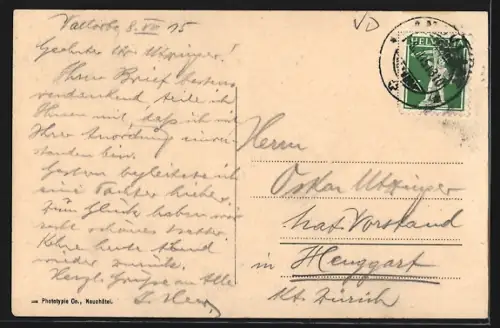 Vallorbe 8. VIII 15
VD
HELVETIA
Geehrter Hr. Utzinger!
Ihren Brief bestens
verdankend teile ich
Ihnen mit, daß ich mit
Ihrer Anordnung einver-
standen bin.
Gestern begleitete ich
eine Tochter hieher.
Zum Glücke haben wir
recht schönes Wetter.
Kehre heute Abend
wieder zurück.
Herzl. Grüsse an Alle
Herrn
Oskar Utzinger
Nat. Vorstand
in Henggart
Kt. Zürich
Phototypie Co., Neuchâtel.